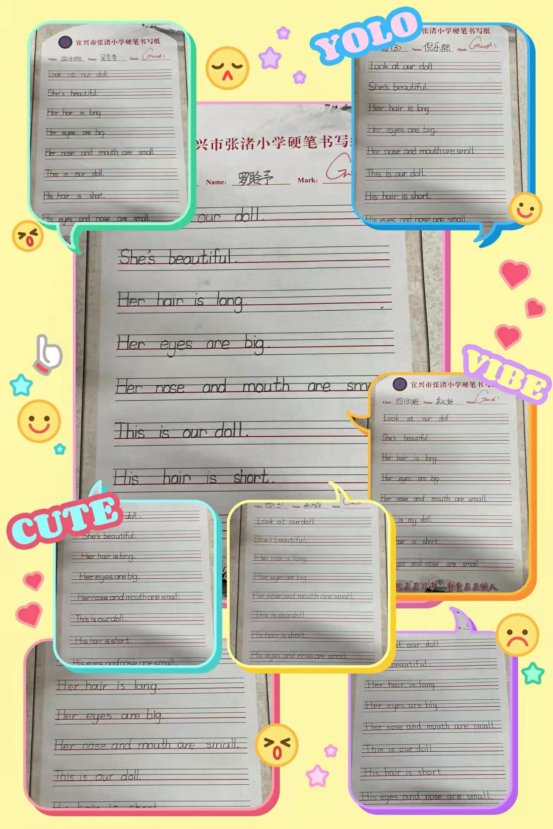 YOLO
宜兴市张渚小学硬笔书写纸
Look at our doll.
She's beautiful.
Her hair is long.
Her eyes are big.
Her nose and mouth are small.
This is our doll.
His hair is short.
His eyes and nose are small.
Look at our doll.
She's beautiful.
Her hair is long
Her eyes are big.
Her nose and mouth are small.
This is our doll.
His hair is short.
His eyes and nose are small.
兴市张渚小学硬笔书写
Name:
Mark:
our doll.
She's beautiful.
Her hair is long.
Her eyes are big.
Her nose and mouth are
This is our doll.
His hair is short.
VIBE
宜兴市张渚小学硬笔书写
Look at our doll
She's beautiful.
Her hair is long.
Her eyes are big.
Her nose and mouth are small.
is my doll.
hair is short.
and nose are small
CUTE
doll.
She's beautiful.
Her hair is long.
Her eyes are big.
Her nose and mouth are small.
This is our doll.
His hair is short
His eyes and nose are small.
Look at our doll
She's beautiful.
Her hair is long.
Her eyes are big.
Her nose and mouth are small.
This is our doll.
His hair is short.
His eyes and nose are small.
Her hair is long.
Her eyes are big.
Her nose and mouth are small.
This is our doll.
His hair is short
at our doll
beautiful.
Her hair is long
Her eyes are big
Her nose and mouth are small.
This is our doll
His hair is short.
His eyes and nose are small.